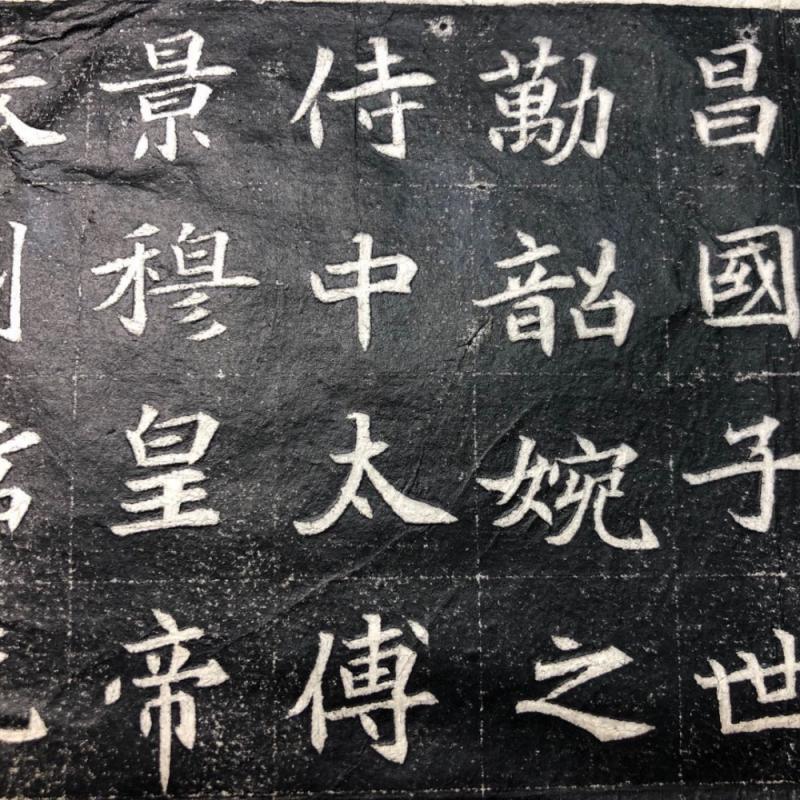 昌國子世
勱韶婉之
侍中太傅
景穆皇帝